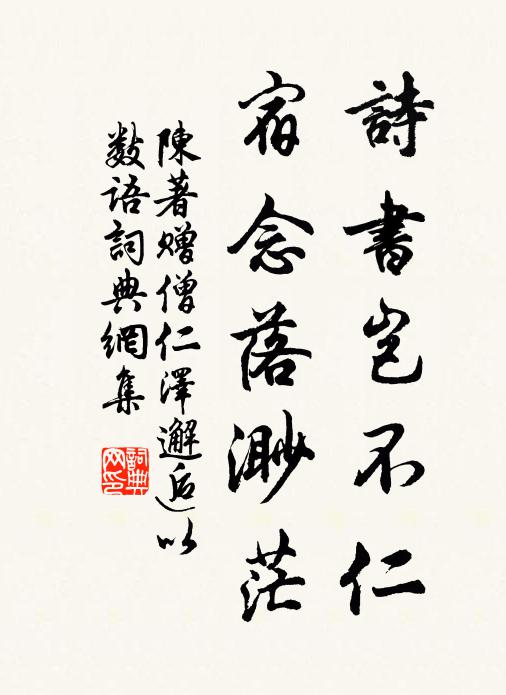 詩書豈不仁
宿念落渺茫
陳著贈僧仁澤邂逅以
數語詞典網集
詞典网印